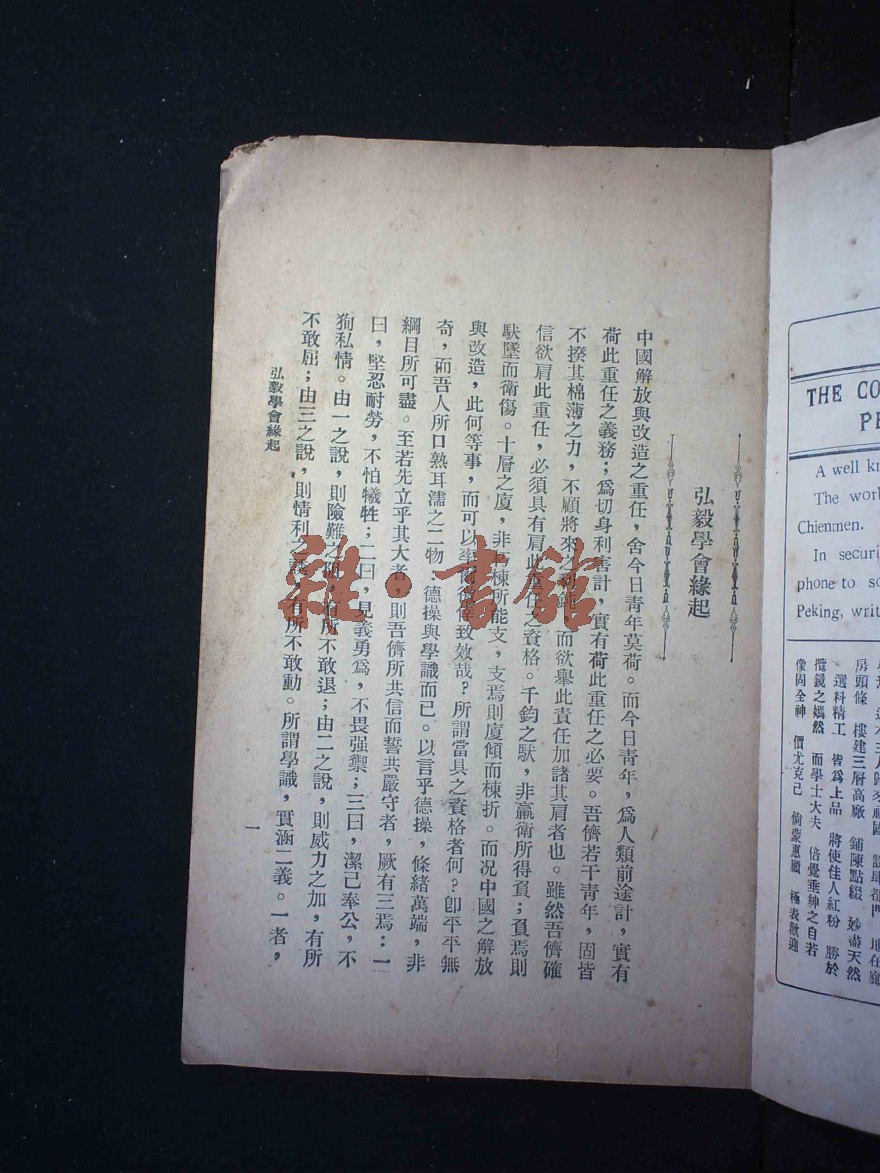 弘毅學會緣起
中國解放與改造之重任，舍今日青年莫荷。而今日青年，爲人類前途計，實有
荷此重任之義務；爲切身利害計，實有荷此重任之必要。吾儕若干青年，固皆
不揆其棉薄之力，不顧將來之利鈍，而欲舉此責任加諸其肩者也。雖然吾儕確
信欲肩此重任，必須具有肩此重任之資格。千鈞之馱，非羸衛所得負；負焉則
馱墜而衛傷。十層之廈，非 棟所能支，支焉則廈傾而棟折。而况中國之解放
與改造，此何等事，而可以 致效哉？所謂當具之資格者何？卽平平無
奇，而吾人所口熟耳濡之二物：德操與學識而已。以言乎德操，條緒萬端，非
綱目所可盡。至若先立乎其大者，則吾儕所共信而誓共嚴守者，厥有三焉：一
曰，堅忍耐勞，不怕犧牲；二曰，見義勇爲，不畏强禦；三曰，潔己奉公，不
狥私情。由一之說，則險難之 ，有所不敢退；由二之說，則威力之加，有所
不敢屈；由三之說，則情利之 ，有所不敢動。所謂學識，實涵二義。一者，
弘毅學會緣起
一
雜·書館
THE CO
PE
A well kn
The wor
Chienmen.
In securi
phone to so
Peking, writ
房頭條 樓建三層高廠 鋪陳點綴 妙盡天然
選料精工 皆爲上品 將使佳人紅粉 勝於
攬鏡之嫣然 而學士大夫 倍覺垂紳之自若
像固全神 價尤克己 倘蒙惠顧 極表歡迎